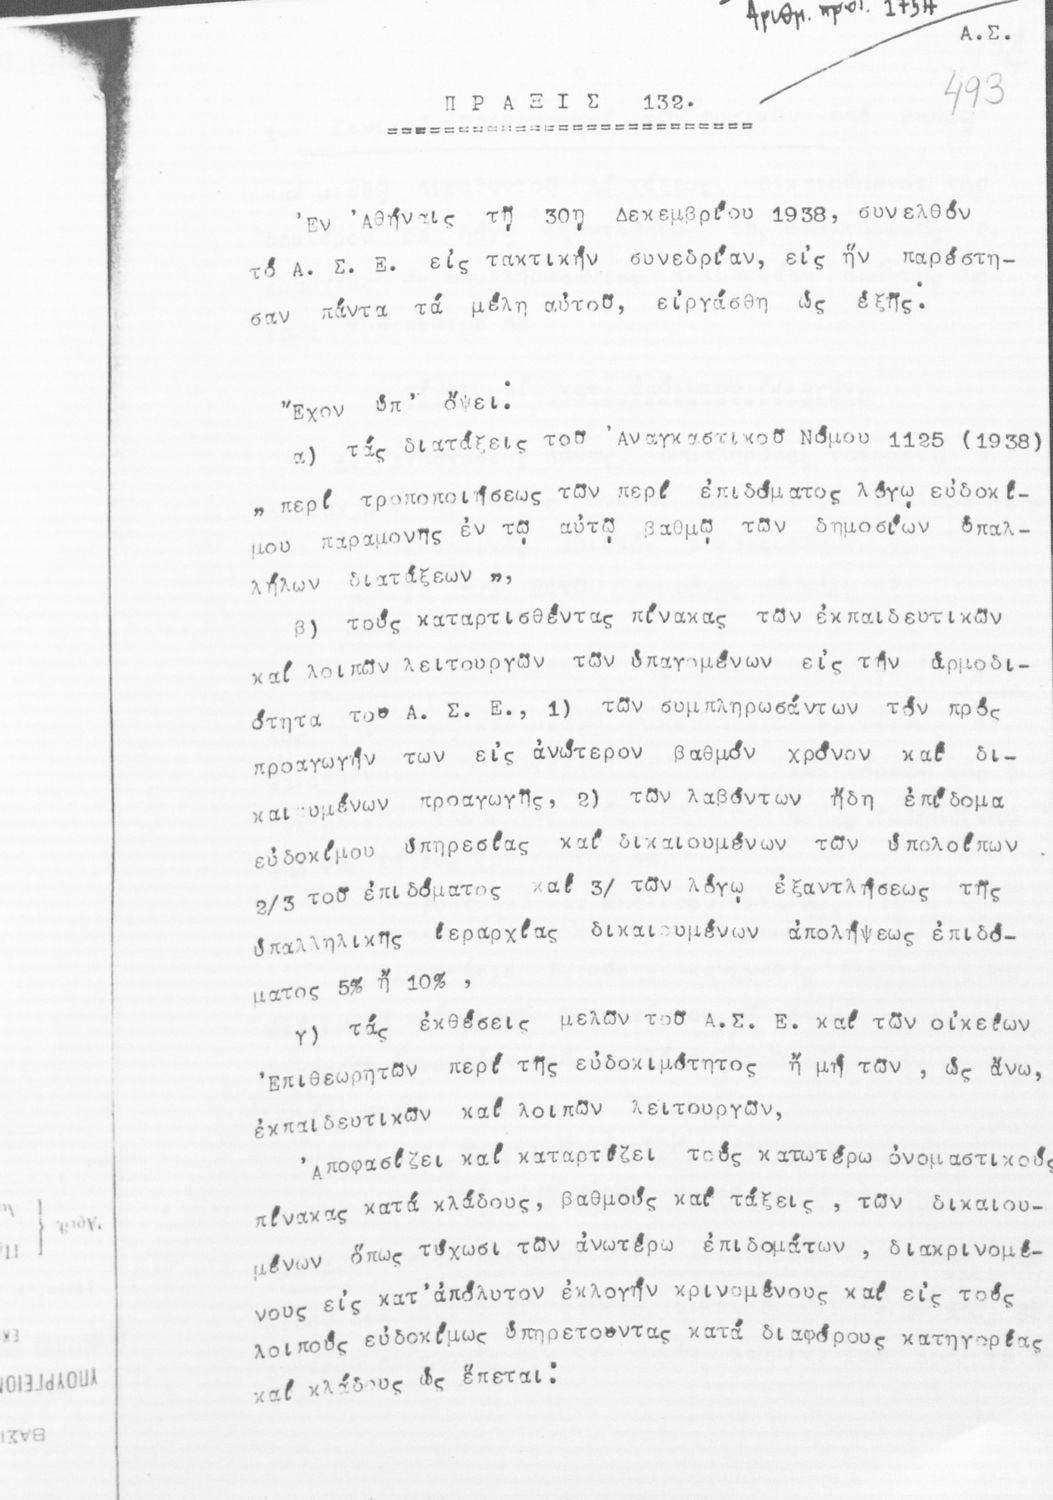 Αριθμ. πρωτ. 1754
Α.Σ.
493
Π Ρ Α Ξ Ι Σ 132.
Ἐν Ἀθήναις τῇ 30ῃ Δεκεμβρίου 1938, συνελθόν
τό Α. Σ. Ε. εἰς τακτικήν συνεδρίαν, εἰς ἥν παρέστη-
σαν πάντα τά μέλη αὐτοῦ, εἰργάσθη ὡς ἑξῆς:
Ἔχον ὑπ' ὄψει:
α) τάς διατάξεις τοῦ Ἀναγκαστικοῦ Νόμου 1125 (1938)
„ περί τροποποιήσεως τῶν περί ἐπιδόματος λόγῳ εὐδοκί-
μου παραμονῆς ἐν τῷ αὐτῷ βαθμῷ τῶν δημοσίων ὑπαλ-
λήλων διατάξεων „,
β) τούς καταρτισθέντας πίνακας τῶν ἐκπαιδευτικῶν
καί λοιπῶν λειτουργῶν τῶν ὑπαγομένων εἰς τήν ἁρμοδι-
ότητα του Α. Σ. Ε., 1) τῶν συμπληρωσάντων τόν πρός
προαγωγήν των εἰς ἀνώτερον βαθμόν χρόνον καί δι-
καιουμένων προαγωγῆς, 2) τῶν λαβόντων ἤδη ἐπίδομα
εὐδοκίμου ὑπηρεσίας καί δικαιουμένων τῶν ὑπολοίπων
2/3 τοῦ ἐπιδόματος καί 3/ τῶν λόγῳ ἐξαντλήσεως τῆς
ὑπαλληλικῆς ἱεραρχίας δικαιουμένων ἀπολήψεως ἐπιδό-
ματος 5% ἤ 10% ,
γ) τάς ἐκθέσεις μελῶν τοῦ Α.Σ. Ε. καί τῶν οἰκείων
Ἐπιθεωρητῶν περί τῆς εὐδοκιμότητος ἤ μή τῶν , ὡς ἄνω,
ἐκπαιδευτικῶν καί λοιπῶν λειτουργῶν,
Ἀποφασίζει καί καταρτίζει τούς κατωτέρω ὀνομαστικούς
πίνακας κατά κλάδους, βαθμούς καί τάξεις , τῶν δικαιου-
μένων ὅπως τύχωσι τῶν ἀνωτέρω ἐπιδομάτων , διακρινομέ-
νους εἰς κατ' ἀπόλυτον ἐκλογήν κρινομένους καί εἰς τούς
λοιπούς εὐδοκίμως ὑπηρετουντας κατά διαφόρους κατηγορίας
καί κλάδους ὡς ἕπεται: